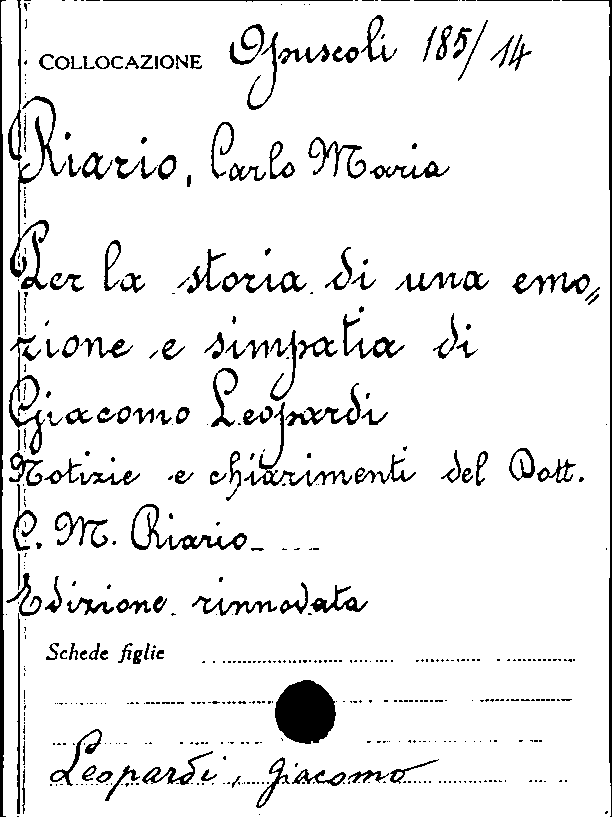 COLLOCAZIONE Opuscoli 185/14
Riario, Carlo Maria
Per la storia di una emo„
zione e simpatia di
Giacomo Leopardi
Notizie e chiarimenti del Dott.
C. M. Riario
Edizione rinnovata
Schede figlie
Leopardi, Giacomo